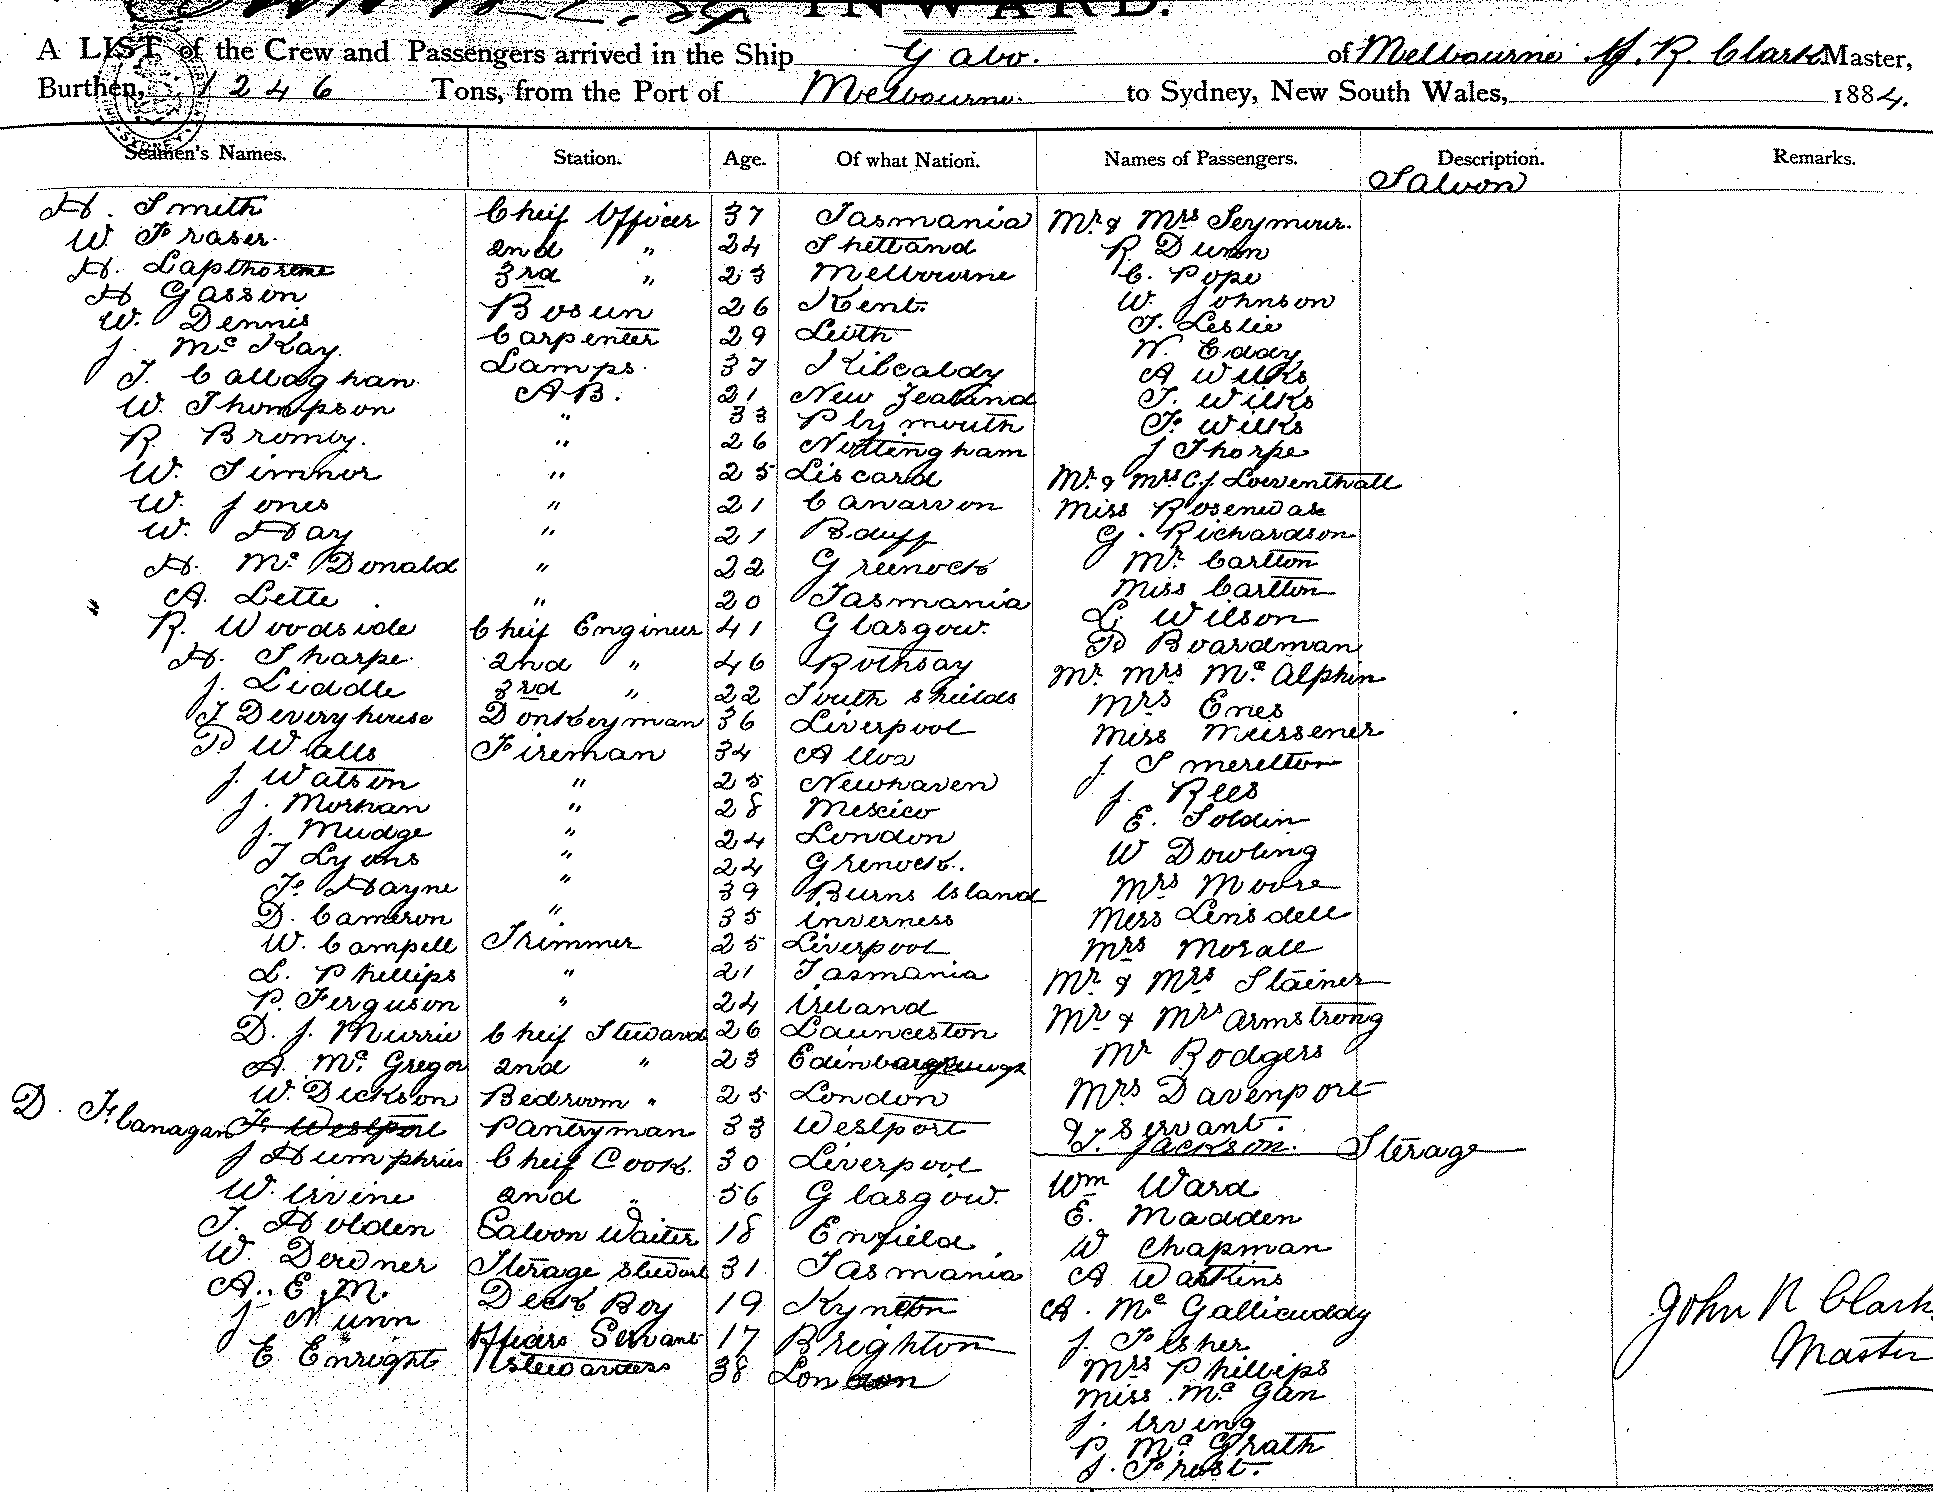 INWARD.
A LIST of the Crew and Passengers arrived in the Ship Gabo. of Melbourne J. R. Clark Master,
Burthen, 1246 Tons, from the Port of Melbourne. to Sydney, New South Wales, 1884.
Seamen's Names. Station. Age. Of what Nation. Names of Passengers. Description. Remarks.
Saloon
H. Smith Cheif Officer 37 Tasmania Mr & Mrs Seymour.
W. Fraser. 2nd " 24 Shetland R Dunn
H. Lapthorne 3rd " 23 Melbourne C. Pope
H Gasson Bosun 26 Kent. W. Johnson
W. Dennis Carpenter 29 Leith T. Leslie
J. Mc Kay. Lamps. 37 Kilcaldy W. Eday
T. Callaghan. A.B. 21 New Zealand A Wilks
W. Thompson " 33 Plymouth T. Wilks
R Bromly. " 26 Nottingham F. Wilks
W. Simnor " 25 Liscard J Thorpe
W. Jones " 21 Canarvon Mr & Mrs C. J. Loeventhall
W. Hay " 21 Banff Miss Rosenwax
H. Mc Donald " 22 Greenock G. Richardson
A. Lette " 20 Tasmania Mr. Carlton
R. Woodside Cheif Engineer 41 Glasgow. Miss Carlton
H. Sharpe 2nd " 46 Rothsay L. Wilson
J. Liddle 3rd " 22 South Shields P Boardman
T Deveryhouse Donkeyman 36 Liverpool Mr. Mrs Mc Alphin
P Walls Fireman 34 Alloa Mrs Enes
J. Watson " 25 Newhaven Miss Meissener
J. Morhan " 28 Mexico J Smerelton
J. Mudge " 24 London J. Rees
T Lyons " 24 Grenock. E. Soldin
F. Hayne " 39 Burns Island W Dowling
D. Cameron " 35 Inverness Mrs Moore
W. Campell Trimmer 25 Liverpool Miss Linsdell
L. Phillips " 21 Tasmania Mrs Morall
P. Ferguson " 24 Ireland Mr & Mrs Stainer
D. J. Murrie Cheif Steward 26 Launceston Mr & Mrs Armstrong
A. Mc Gregor 2nd " 23 Mr Rodgers
W. Dickson Bedroom " 25 London Mrs Davenport
D. Flanagan F. Westport Pantryman 33 Westport & Servant.
J Humphries Cheif Cook. 30 Liverpool T. Jackson. Sterage
W. Irvine 2nd " 56 Glasgow. Wm Ward
T. Holden Saloon Waiter 18 Enfield. E. Madden
W. Derdner Sterage Steward 31 Tasmania W Chapman
A. E. M. Deck Boy 19 Kyneton A Watkins
J Nunn Officers Servant 17 Brighton A. Mc Gallicuddy
E Enright Stewardess 38 London J. Fisher
Mrs Phillips
Miss Mc Gan
J. Irving
P. Mc Grath
J. Frost.
John R Clark
Master